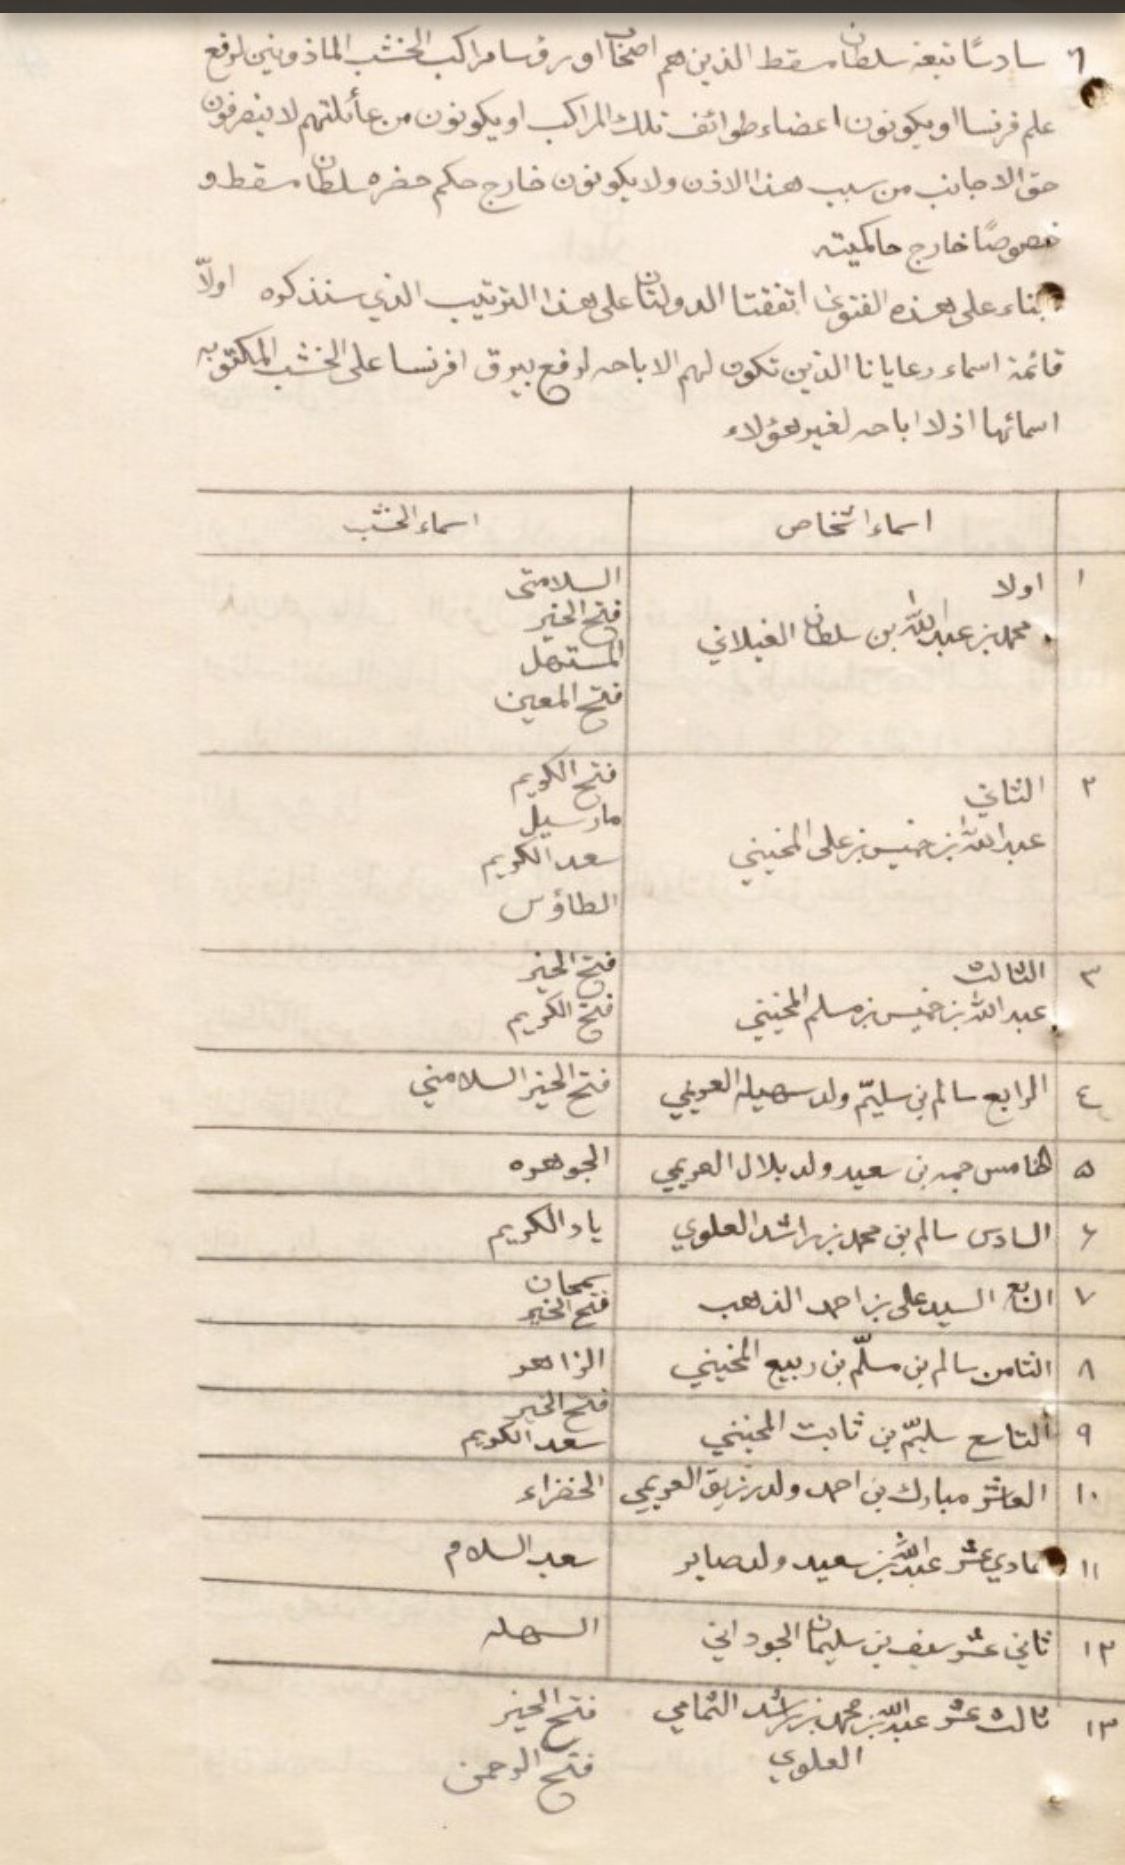 ٦ سادسًا تبعة سلطان مسقط الذين هم اصحاب او رؤسا مراكب الخشب الماذونين لرفع
علم فرنسا او يكونون اعضاء طوائف تلك المراكب او يكونون من عائلتهم لا يتصرفون
حق الاجانب من سبب هذا الاذن ولا يكونون خارج حكم حضره سلطان مسقط و
خصوصًا خارج حاكميته
بناء على هذه الفتوى اتفقتا الدولتان على هذا الترتيب الذي سنذكره اولاً
قائمة اسماء رعايانا الذين تكون لهم الاباحه لرفع بيرق افرنسا على الخشب المكتوبه
اسمائها اذ لا اباحه لغير هؤلاء
اسماء اشخاص اسماء الخشب
١ اولا السلامتى
محمد بن عبدالله بن سلطان الغيلاني فتح الخير
المستهل
فتح المعين
٢ الثاني فتح الكريم
عبدالله بن خميس بن على المخيني مارسيل
سعد الكريم
الطاؤس
٣ الثالث فتح الخير
عبدالله بن خميس بن مسلم المخيني فتح الكريم
٤ الرابع سالم بن سليّم ولد سهيله العريمي فتح الخير السلامتي
٥ الخامس جمعه بن سعيد ولد بلال العريمي الجوهره
٦ السادس سالم بن محمد بن راشد العلوي ياد الكريم
٧ السابع السيد على بن احمد الذهب سمحان
فتح الخير
٨ الثامن سالم بن مسلّم بن ربيع المخيني الزاهر
٩ التاسع سليّم بن ثابت المخيني فتح الخير
سعد الكريم
١٠ العاشر مبارك بن احمد ولد رزيق العريمي الخضراء
١١ حادي عشر عبدالله بن سعيد ولد صابر سعد السلام
١٢ ثاني عشر سيف بن سليمان الجوداني السهله
١٣ ثالث عشر عبدالله بن محمد بن راشد الشمامي فتح الخير
العلوي فتح الرحمن